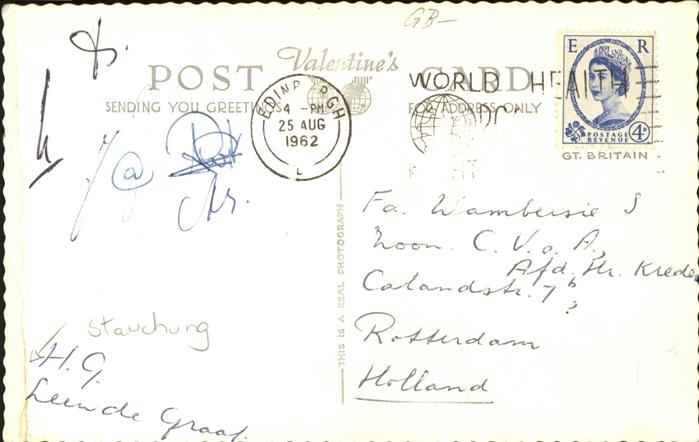 GB-
E R
POSTAGE
REVENUE
4D
GT. BRITAIN
POST Valentine's CARD
SENDING YOU GREETINGS FOR ADDRESS ONLY
EDINBURGH
4 - PM
25 AUG
1962
WORLD HEALTH
@
Fa. Wambersie &
Zoon. C.V.o.A.,
Afd. Hr. Krede
Calandstr. 7b,
Rotterdam
Holland
THIS IS A REAL PHOTOGRAPH
Stauchung
H.G.
Leen de Graaf.